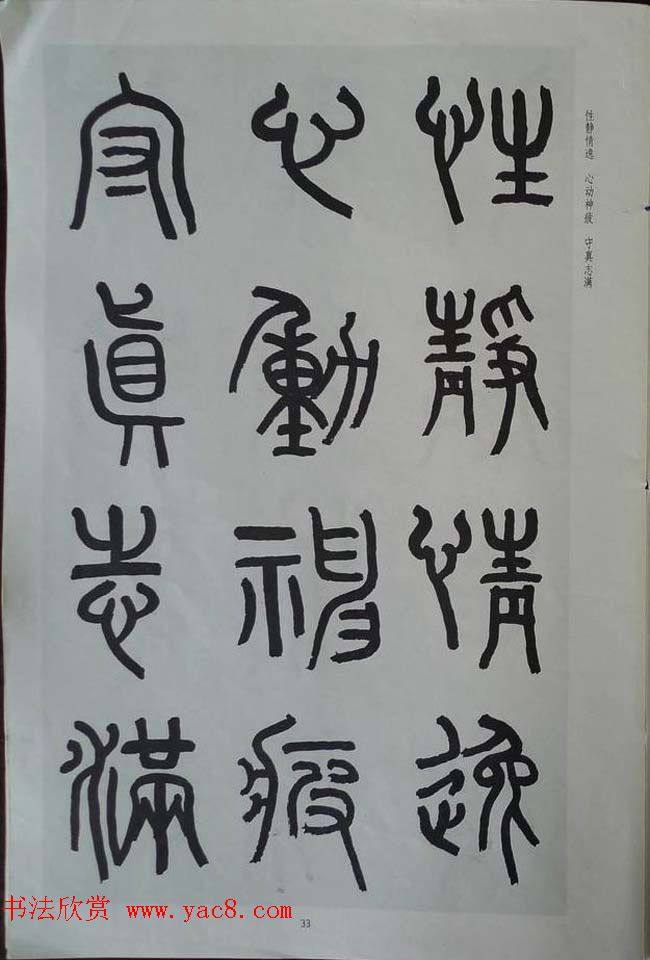 性靜情逸
心動神疲
守真志滿
性静情逸 心动神疲 守真志满
书法欣赏 www.yac8.com
33